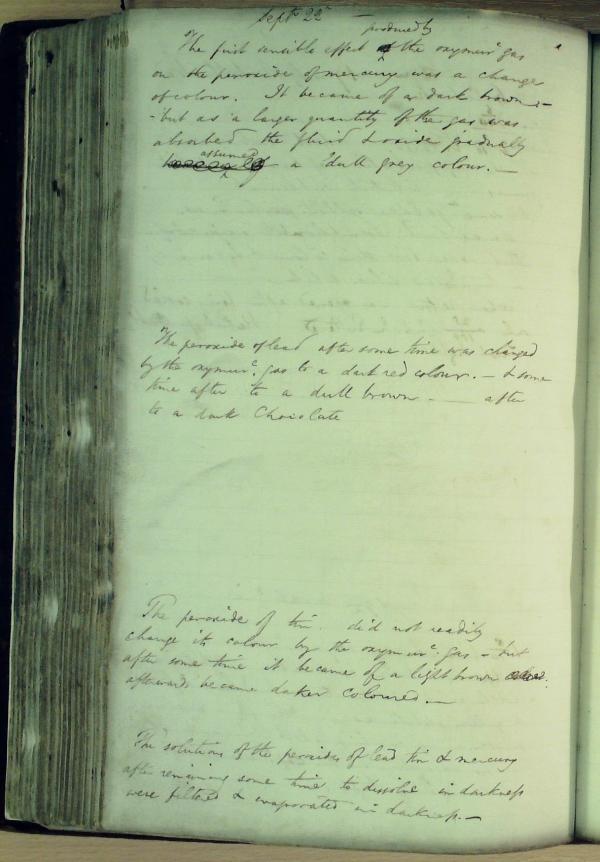 Septr 22d —
produced by
The first sensible effect of the oxymurc gas
on the peroxide of mercury was a change
of colour. It became of a dark brown –
– but as a larger quantity of the gas was
absorbed the fluid & oxide gradually
assumed
a dull grey colour. —
The peroxide of lead after some time was changed
by the oxymurc. gas to a dark red colour. – & some
time after to a dull brown – — after
to a dark Chocolate
The peroxide of tin did not readily
change its colour by the oxymurc. gas – but
after some time it became of a light brown
afterwards became darker coloured. —
The solutions of the peroxides of lead tin & mercury
after remaining some time to dissolve in darkness
were filtered & evaporated in darkness. —